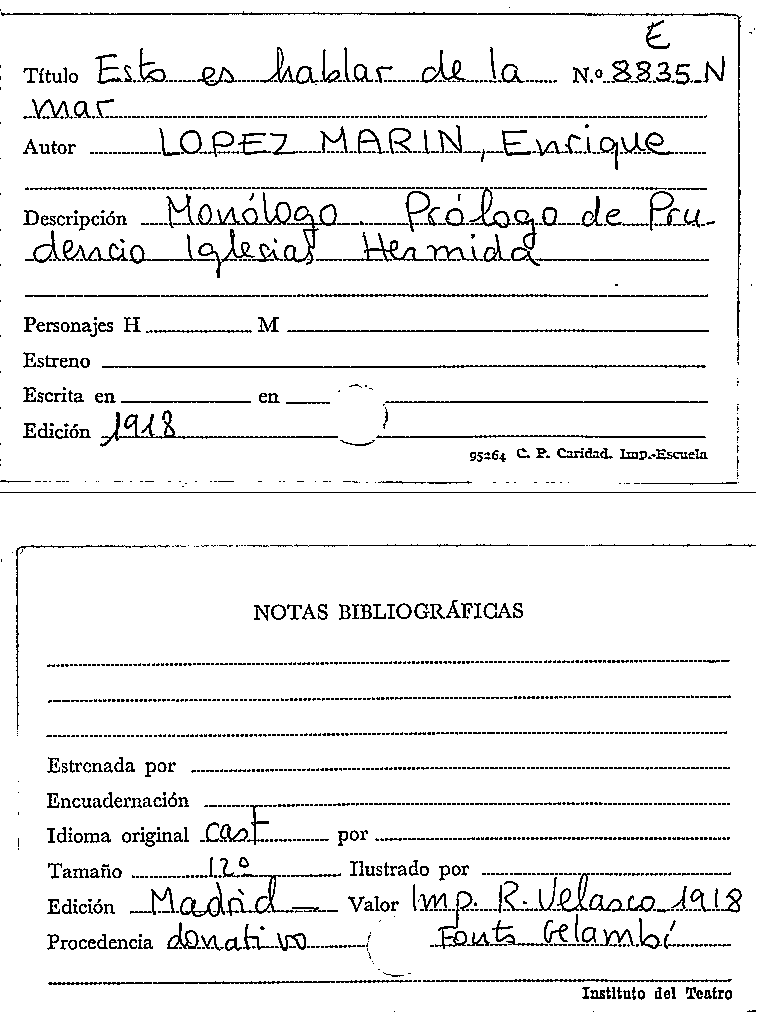 E
Título Esto es hablar de la N.º 8835-N
mar
Autor LOPEZ MARIN, Enrique
Descripción Monólogo. Prólogo de Pru-
dencio Iglesias Hermida
Personajes H M
Estreno
Escrita en en
Edición 1918
95264 C. P. Caridad. Imp.-Escuela
NOTAS BIBLIOGRÁFICAS
Estrenada por
Encuadernación
Idioma original cast por
Tamaño 12º Ilustrado por
Edición Madrid — Valor Imp. R. Velasco 1918
Procedencia donativo Fonts Gelambí
Instituto del Teatro